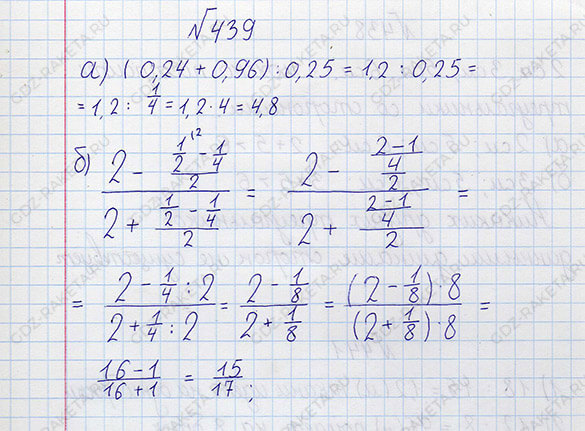 №439
а) (0,24 + 0,96) : 0,25 = 1,2 : 0,25 =
= 1,2 : 1/4 = 1,2 · 4 = 4,8
б) (2 - (1/2^(2) - 1/4)/2)/(2 + (1/2 - 1/4)/2) = (2 - ((2-1)/4)/2)/(2 + ((2-1)/4)/2) =
= (2 - 1/4 : 2)/(2 + 1/4 : 2) = (2 - 1/8)/(2 + 1/8) = ((2 - 1/8) · 8)/((2 + 1/8) · 8) =
(16-1)/(16+1) = 15/17 ;
GDZ-RAKETA.RU